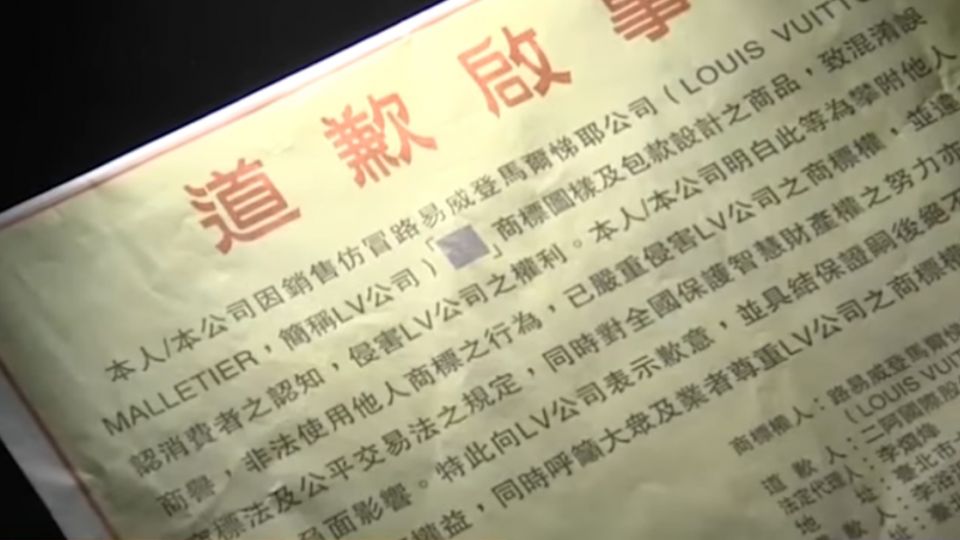 道歉啟事
本人/本公司因銷售仿冒路易威登馬爾悌耶公司（LOUIS VUITTO
MALLETIER，簡稱LV公司）「」商標圖樣及包款設計之商品，致混淆誤
認消費者之認知，侵害LV公司之權利。本人/本公司明白此等為攀附他人
商譽，非法使用他人商標之行為，已嚴重侵害LV公司之商標權，並違
商標法及公平交易法之規定，同時對全國保護智慧財產權之努力亦
負面影響。特此向LV公司表示歉意，並具結保證嗣後絕不
權益，同時呼籲大眾及業者尊重LV公司之商標權
商標權人：路易威登馬爾悌
（LOUIS VUIT
道歉人：二阿國際股
法定代理人：李
地址：臺北市
歉人：李
址：臺